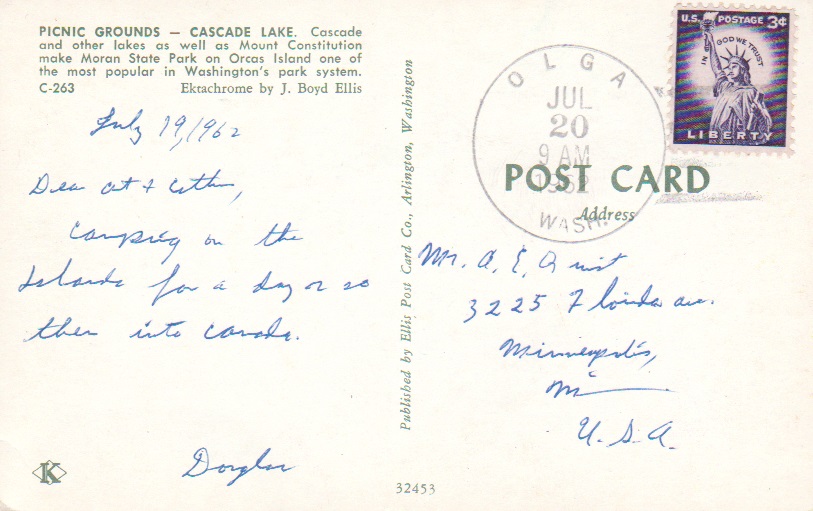 PICNIC GROUNDS — CASCADE LAKE. Cascade
and other lakes as well as Mount Constitution
make Moran State Park on Orcas Island one of
the most popular in Washington's park system.
C-263 Ektachrome by J. Boyd Ellis
July 19, 1962
Dear Art +
Camping on the
Islands for a day or so
then into Canada.
Douglas
K
Published by Ellis Post Card Co., Arlington, Washington
32453
OLGA
JUL
20
9 AM
1962
WASH.
U.S. POSTAGE 3¢
IN GOD WE TRUST
LIBERTY
POST CARD
Address
Mr. A. E. Quist
3225 Florida ave.
Minneapolis,
U.S.A.